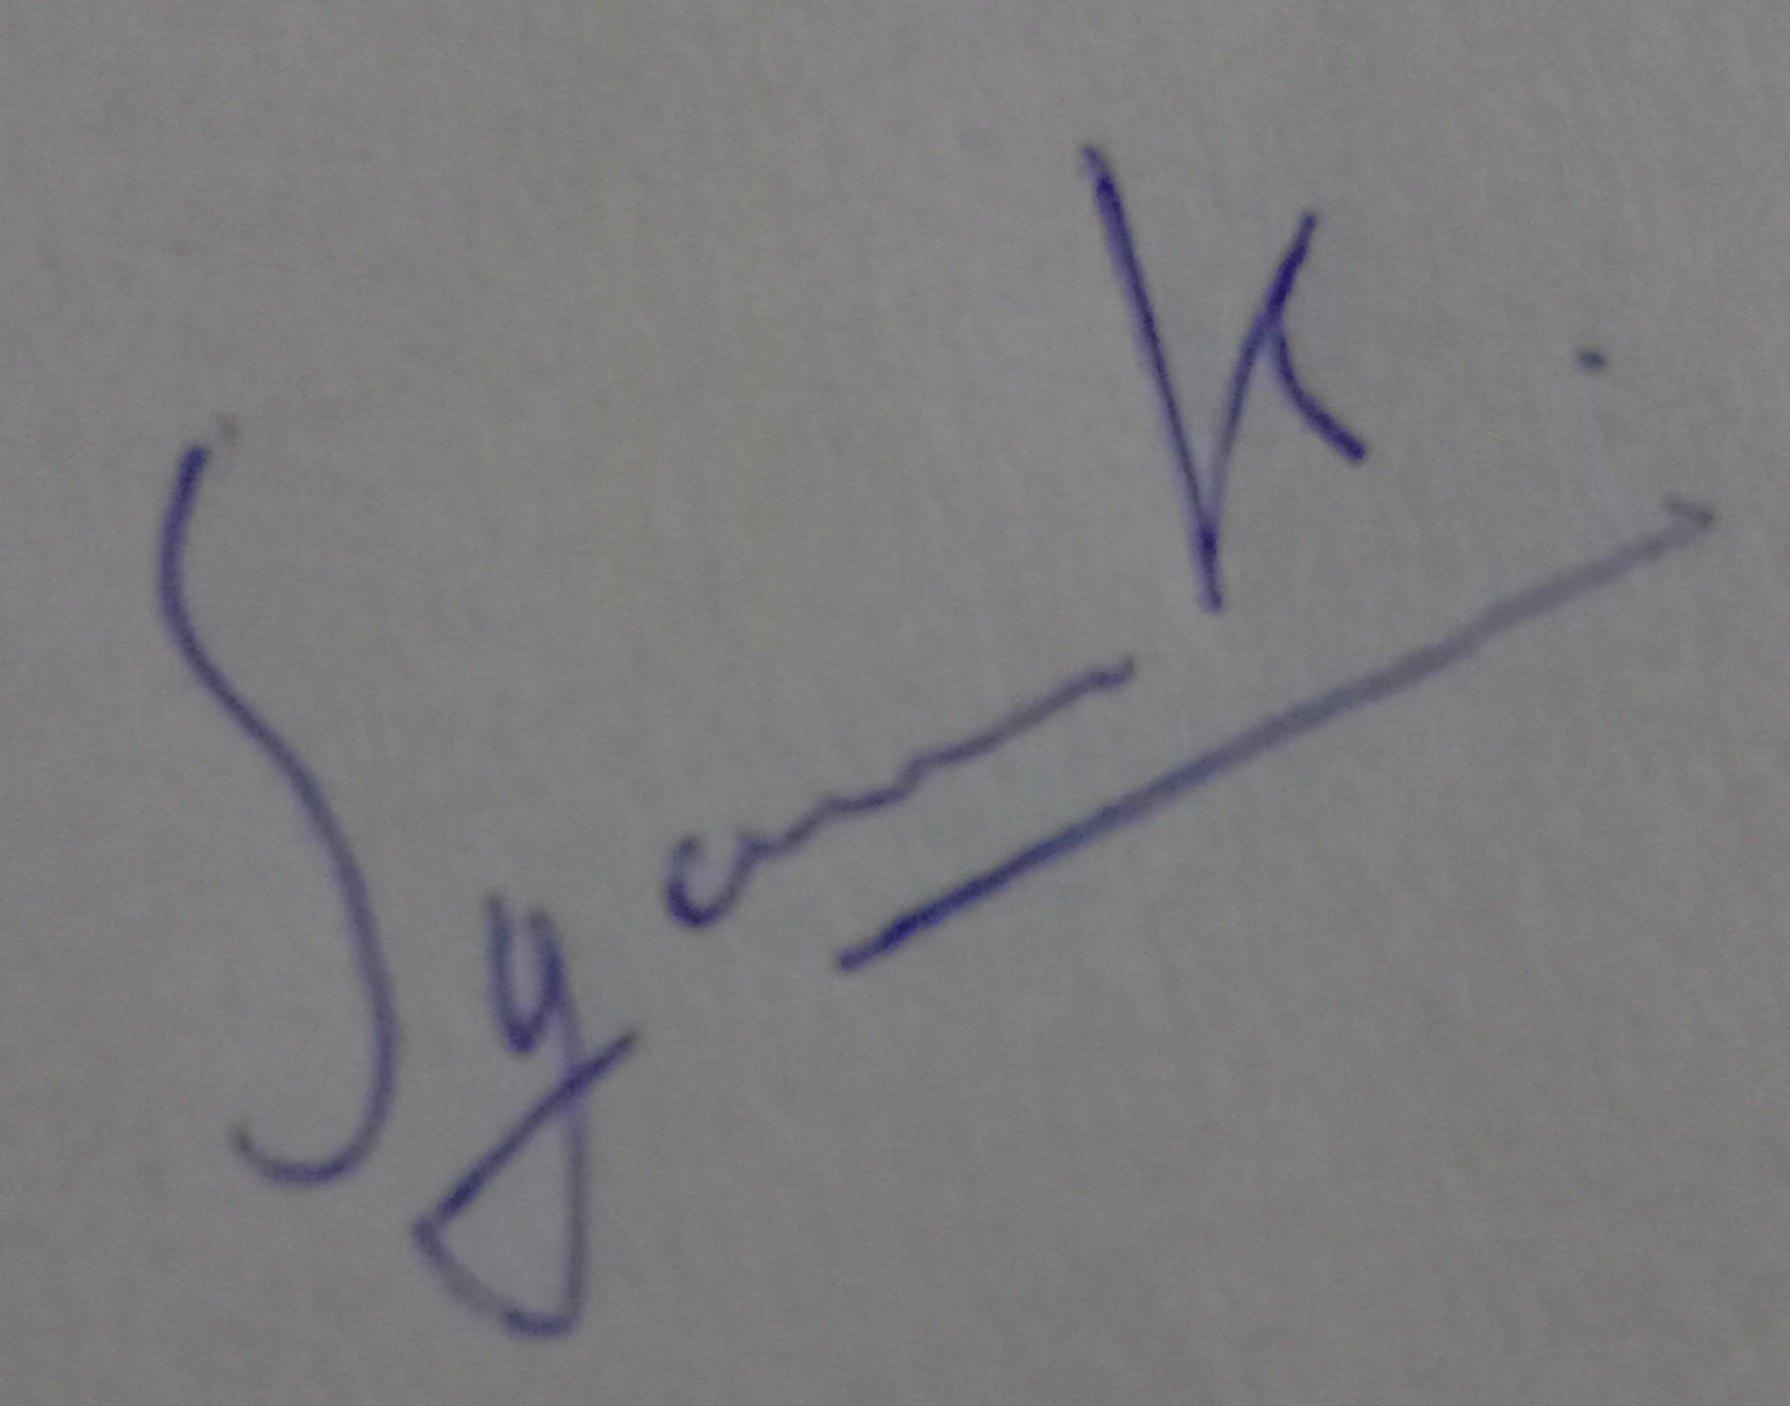 Syam K.